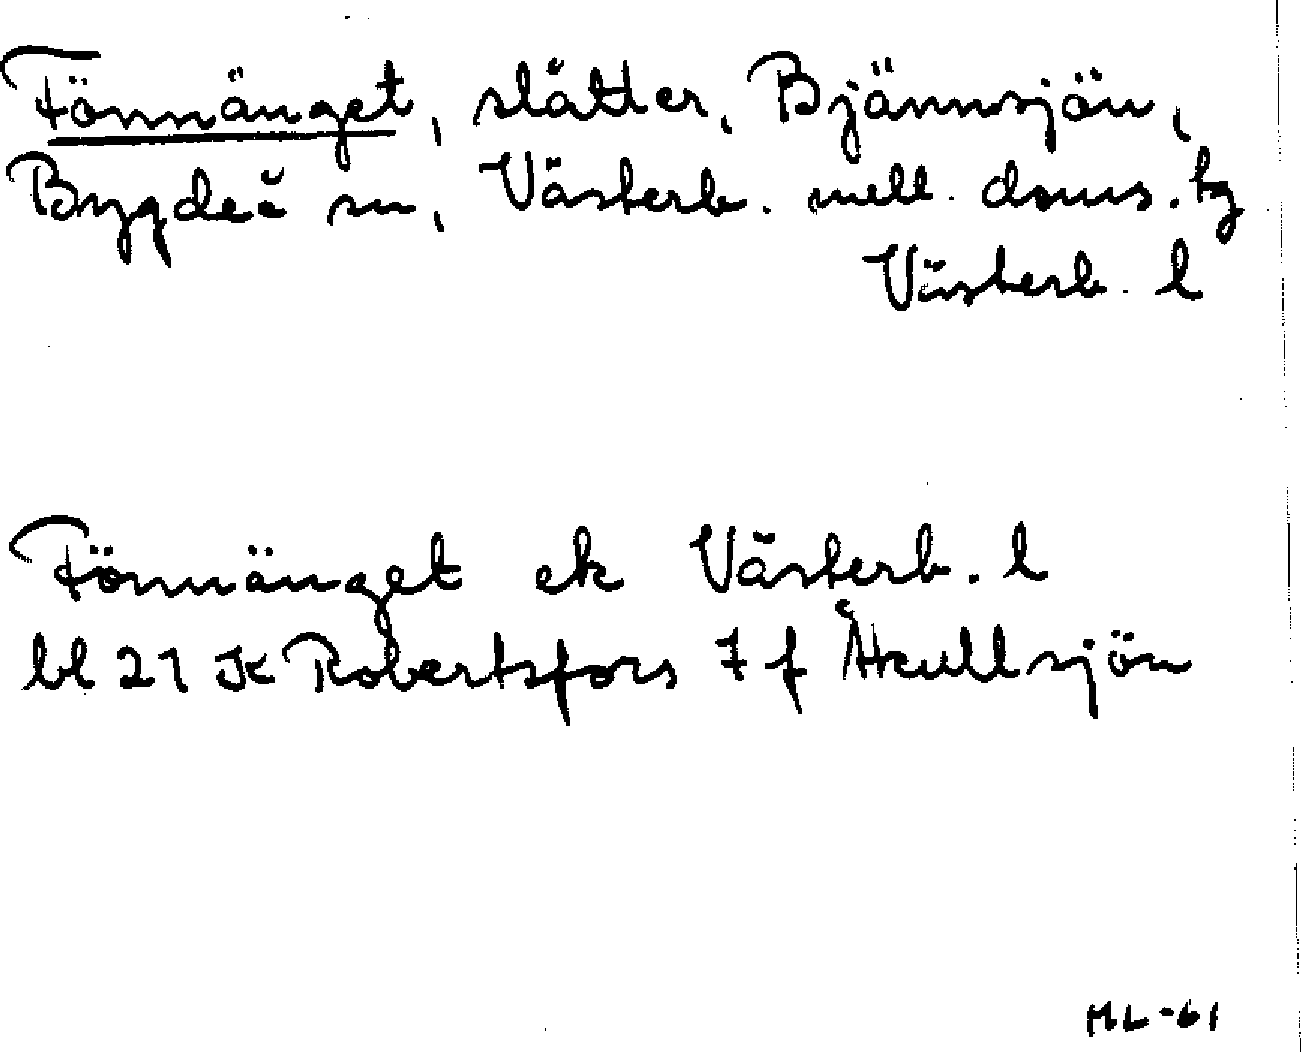 Fönnänget, slåtter, Bjännsjön,
Bygdeå sn, Västerb. mell. doms. tg
Västerb. l
Fönnänget ek Västerb. l
bl 21 K Robertsfors 7 f Åkullsjön
ML-61